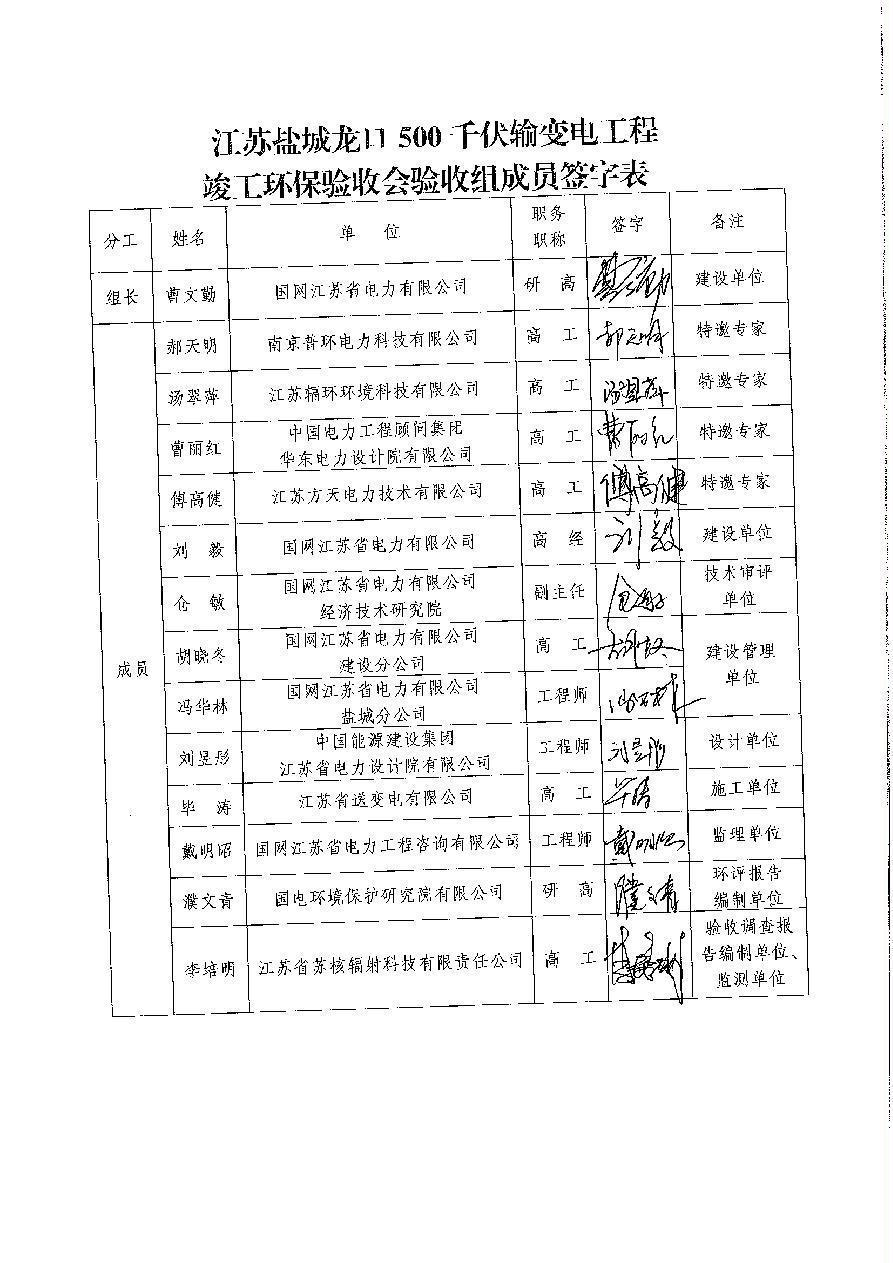 江苏盐城龙口 500 千伏输变电工程
竣工环保验收会验收组成员签字表
分工 姓名 单 位 职务职称 签字 备注
组长 曹文勤 国网江苏省电力有限公司 研 高 曹文勤 建设单位
成员
郝天明 南京普环电力科技有限公司 高 工 郝天明 特邀专家
汤翠萍 江苏辐环环境科技有限公司 高 工 汤翠萍 特邀专家
曹丽红 中国电力工程顾问集团 高 工 曹丽红 特邀专家
华东电力设计院有限公司
傅高健 江苏方天电力技术有限公司 高 工 傅高健 特邀专家
刘 毅 国网江苏省电力有限公司 高 经 刘毅 建设单位
仓 敏 国网江苏省电力有限公司 副主任 仓敏 技术审评
经济技术研究院 单位
胡晓冬 国网江苏省电力有限公司 高 工 建设管理
建设分公司 单位
冯华林 国网江苏省电力有限公司 工程师
盐城分公司
刘昱彤 中国能源建设集团 工程师 刘昱彤 设计单位
江苏省电力设计院有限公司
毕 涛 江苏省送变电有限公司 高 工 毕涛 施工单位
戴明昭 国网江苏省电力工程咨询有限公司 工程师 戴明昭 监理单位
濮文青 国电环境保护研究院有限公司 研 高 濮文青 环评报告
编制单位
李培明 江苏省苏核辐射科技有限责任公司 高 工 验收调查报
告编制单位、
监测单位